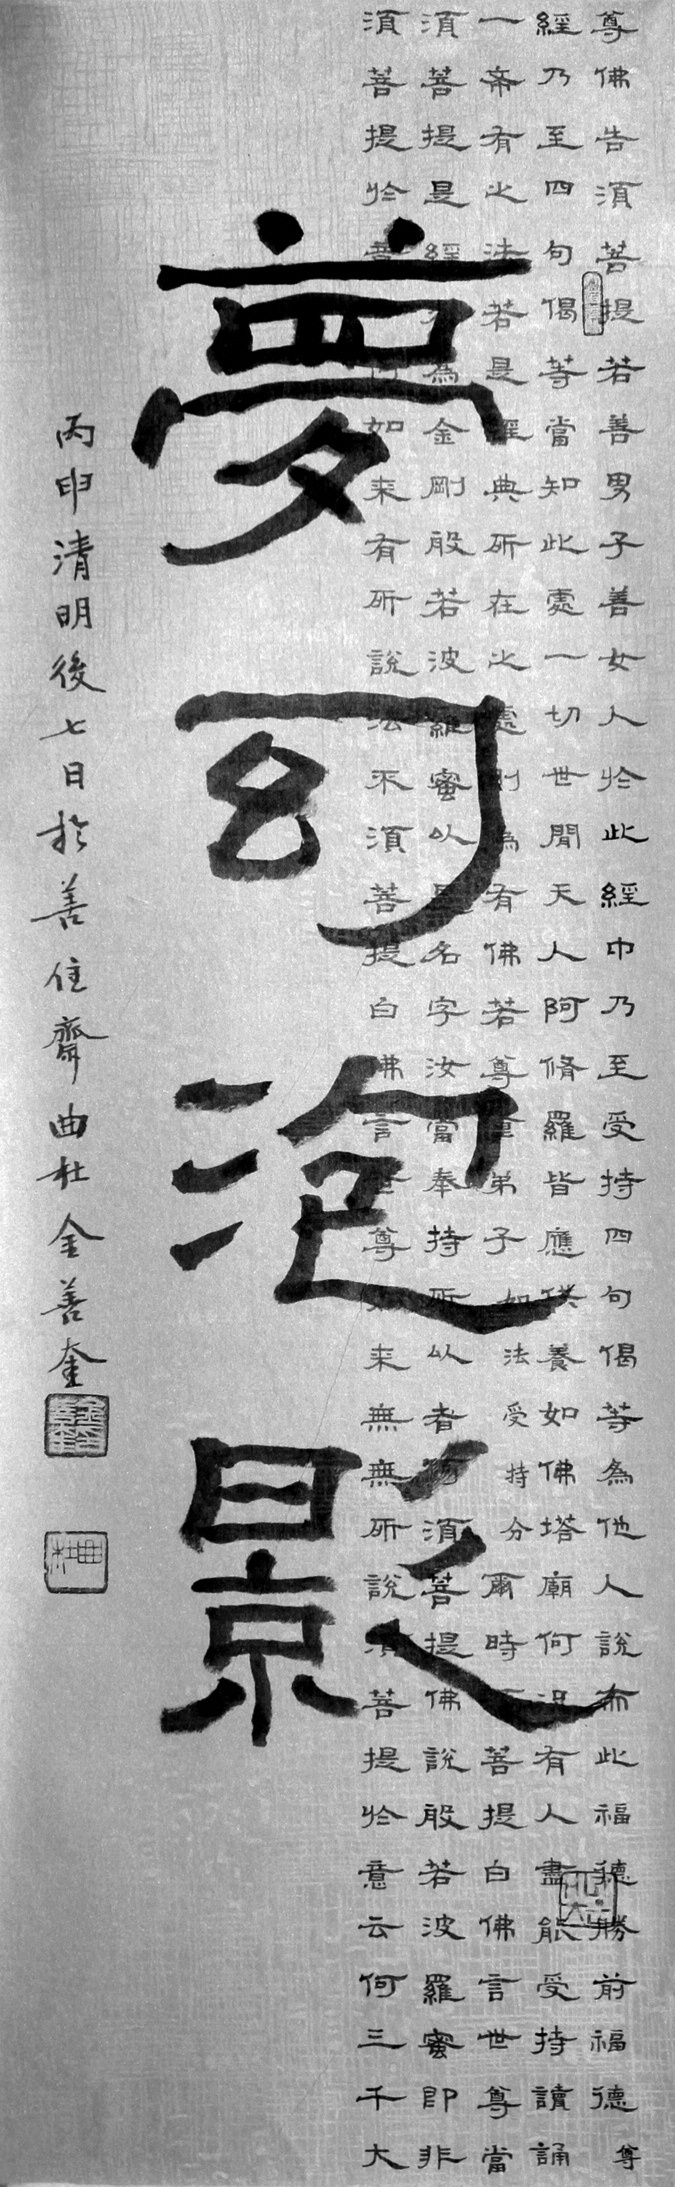 尊佛告須菩提若善男子善女人於此經中乃至受持四句偈等為他人說而此福德勝前福德尊
經乃至四句偈等當知此處一切世間天人阿脩羅皆應供養如佛塔廟何況有人盡能受持讀誦
一希有之法若是經典所在之處則為有佛若尊重弟子如法受持分爾時須菩提白佛言世尊當
須菩提是經名為金剛般若波羅蜜以是名字汝當奉持所以者何須菩提佛說般若波羅蜜即非
須菩提於意云何如来有所說法不須菩提白佛言世尊如来無無所說須菩提於意云何三千大
夢幻泡影
丙申清明後七日於善住齋曲杜金善奎